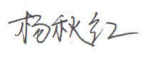 杨秋红